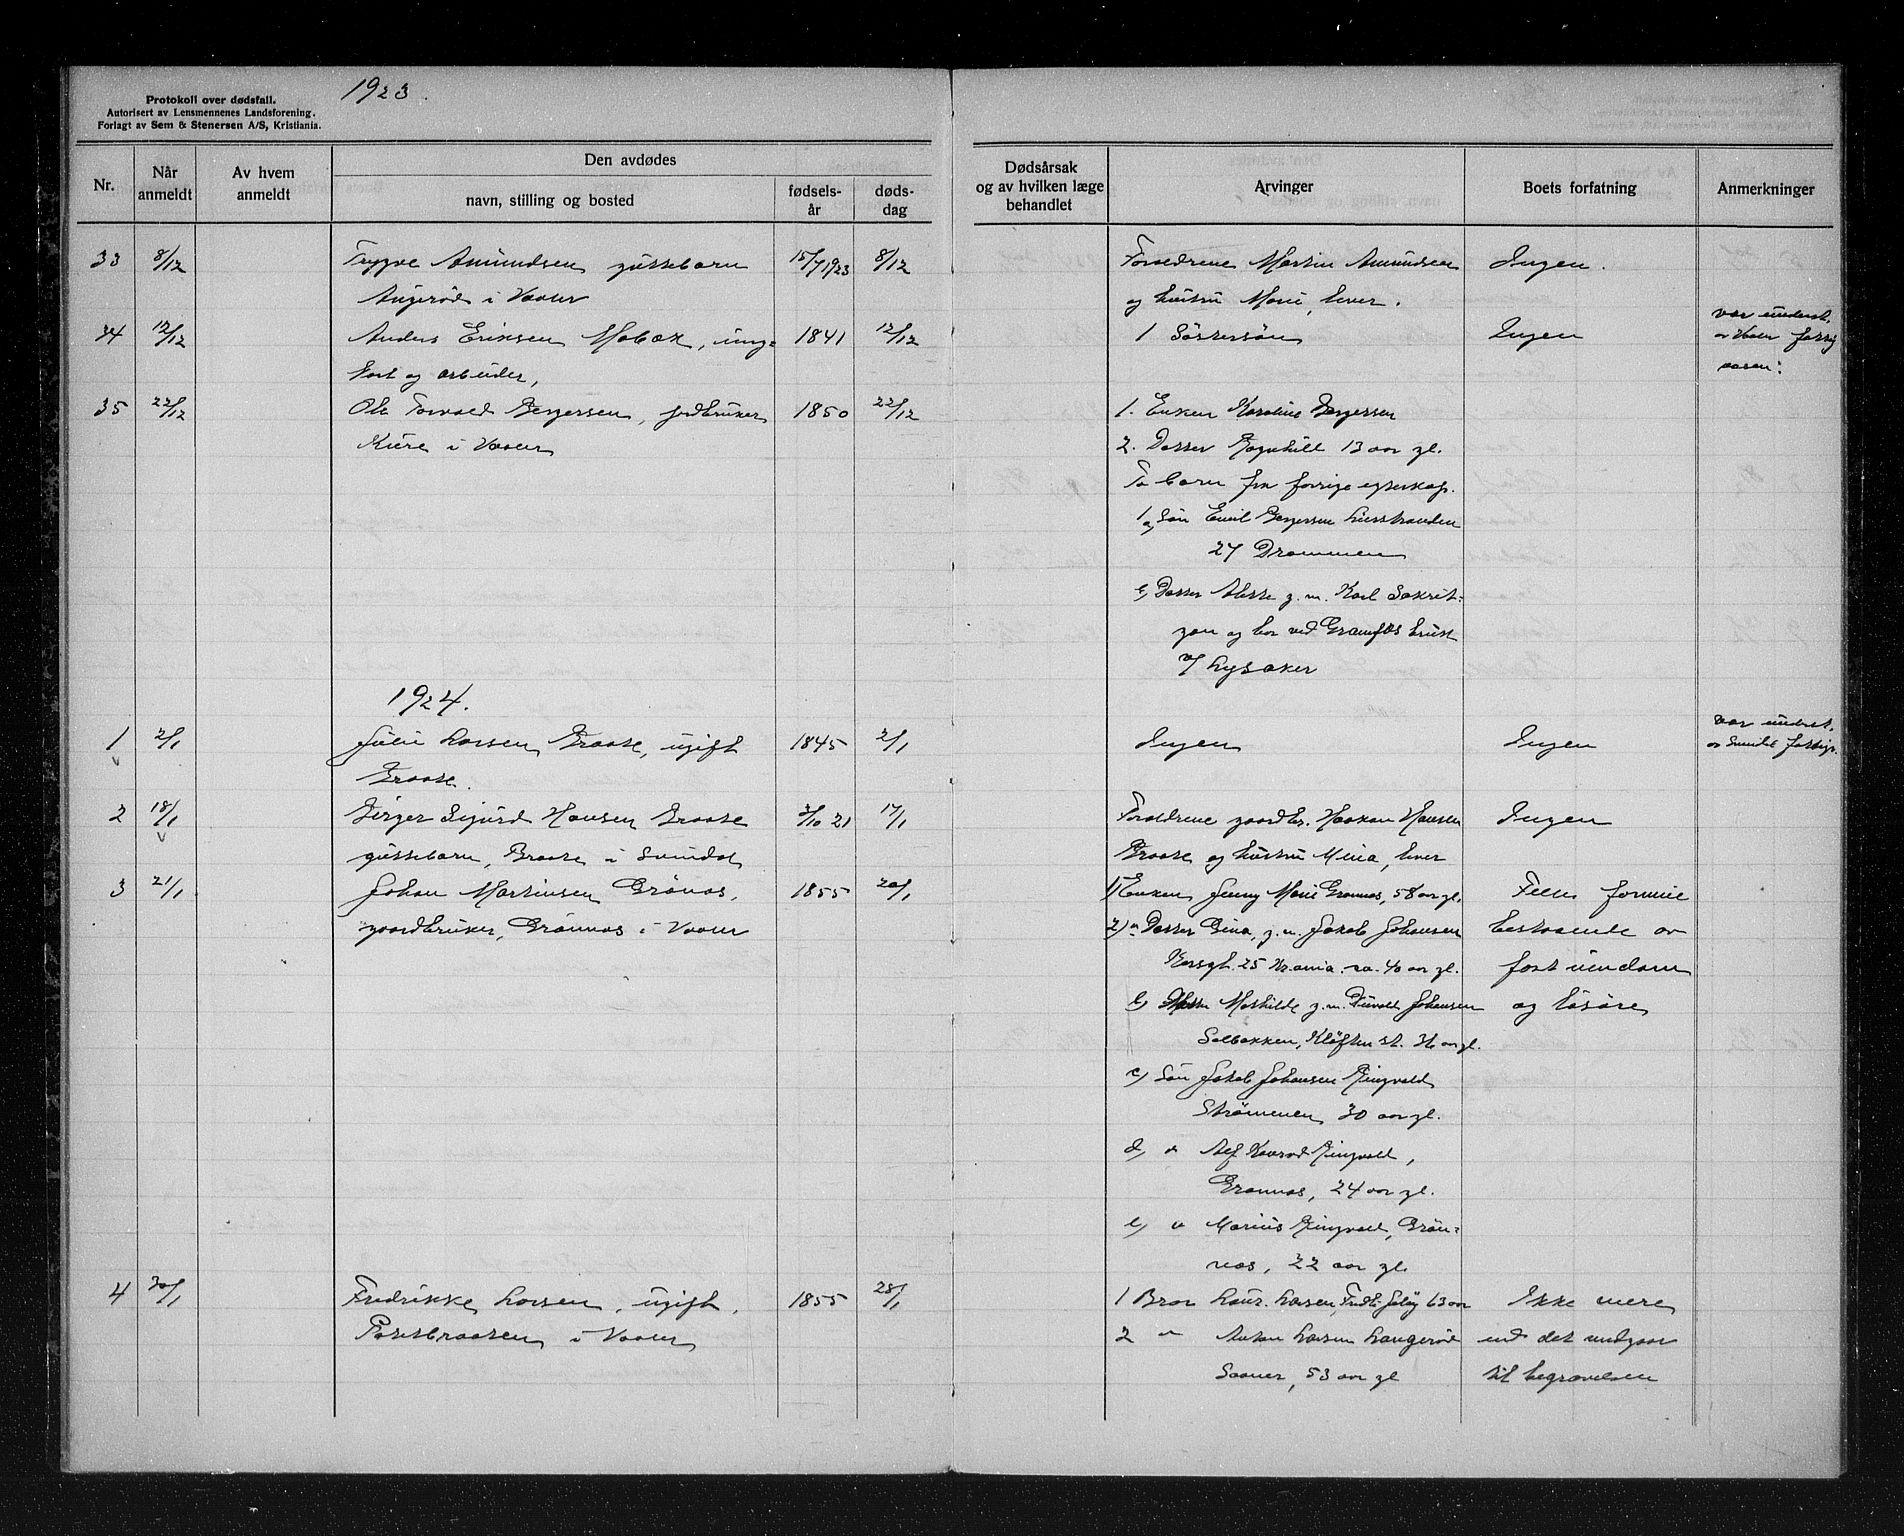 Protokoll over dødsfall.
Autorisert av Lensmennenes Landsforening.
Forlagt av Sem & Stenersen A/S, Kristiania.
1923.
Nr.
Når anmeldt
Av hvem anmeldt
Den avdødes
navn, stilling og bosted
fødsels-år
døds-dag
Dødsårsak og av hvilken læge behandlet
Arvinger
Boets forfatning
Anmerkninger
33 8/12 Trygve Amundsen guttebarn 15/7 1923 8/12 Forældrene Martin Amundsen Ingen.
Augerød i Vaaler og hustru Marie, lever.
34 12/12 Anders Eriksen Møbæk, ung- 1841 12/12 1 Søstersøn Ingen var underst.
kart og arbeider, av Vaaler fattig
35 22/12 Ole Torvald Bergersen, jordbruker 1850 22/12 1. Enken Karoline Bergersen
Kure i Vaaler 2. Datter Ragnhild 13 aar gl.
To barn fra forrige egteskap.
1 a, Søn Emil Bergersen
27 Drammen
b, Datter g.m. Karl
og bor ved Granfos bruk
v/ Lysaker
1924.
1 2/1 Julie Larsen Braate, ugift 1845 2/1 Ingen Ingen var underst.
Braate. fattigv.
2 18/1 Birger Sigurd Hansen Braate 3/10 21 17/1 Forældrene gaardbr. Haakon Hansen Ingen
guttebarn, Braate i Svindal Braate og hustru Mina, lever
3 21/1 Johan Martinsen Grønnas, 1855 20/1 1) Enken Jenny Marie Grønnas, 58 aar gl. Felles formue
gaardbruker, Grønnas i Vaaler 2) a Datter Gina, g.m. Jakob Johansen bestaaende av
25 Kr.ania. ca. 40 aar gl. fast eiendom
b) Mathilde g.m. Johansen og løsøre
Solbakken, Kløften st. 36 aar gl.
c) Søn Jakob Johansen Ringvold
Strømmen 30 aar gl.
d) " Alf Konrad Ringvold,
Grønnas, 24 aar gl.
e) " Marius Ringvold, Grøn-
nas, 22 aar gl.
4 30/1 Fredrikke Larsen, ugift, 1855 28/1 1 Bror Laur. Larsen, Jeløy 63 aar Ikke mere
i Vaaler 2 " Anton Larsen Langerød end det medgaar
Saaner, 53 aar gl til begravelsen